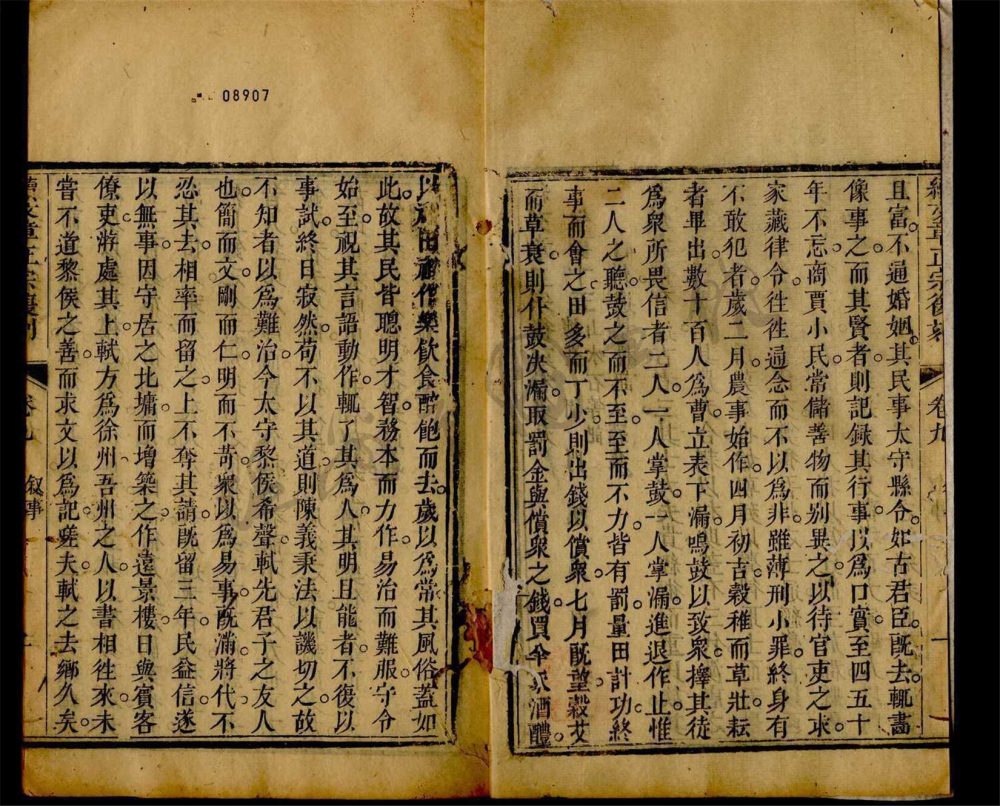 08907
且富不通婚姻其民事太守縣令如古君臣既去輒畫
像事之而其賢者則記録其行事以爲口實至四五十
年不忘商賈小民常儲善物而別異之以待官吏之求
家藏律令徃徃通念而不以爲非雖薄刑小罪終身有
不敢犯者歲二月農事始作四月初吉穀稚而草壯耘
者畢出數十百人爲曹立表下漏鳴鼓以致衆擇其徒
爲衆所畏信者二人一人掌鼓一人掌漏進退作止惟
二人之聽鼓之而不至至而不力皆有罰量田計功終
事而會之田多而丁少則出錢以償衆七月既望穀艾
而草衰則仆鼓决漏取罰金與償衆之錢買羊豕酒醴
以祀田祖作樂飲食醉飽而去歲以爲常其風俗蓋如
此故其民皆聰明才智務本而力作易治而難服守令
始至視其言語動作輒了其爲人其明且能者不復以
事試終日寂然苟不以其道則陳義秉法以譏切之故
不知者以爲難治今太守黎侯希聲軾先君子之友人
也簡而文剛而仁明而不苛衆以爲易事既滿將代不
忍其去相率而留之上不奪其請既留三年民益信遂
以無事因守居之北墉而增築之作遠景樓日與賓客
僚吏游處其上軾方爲徐州吾州之人以書相徃來未
嘗不道黎侯之善而求文以爲記嗟夫軾之去鄉久矣
續文章正宗復刻
卷九
叙事